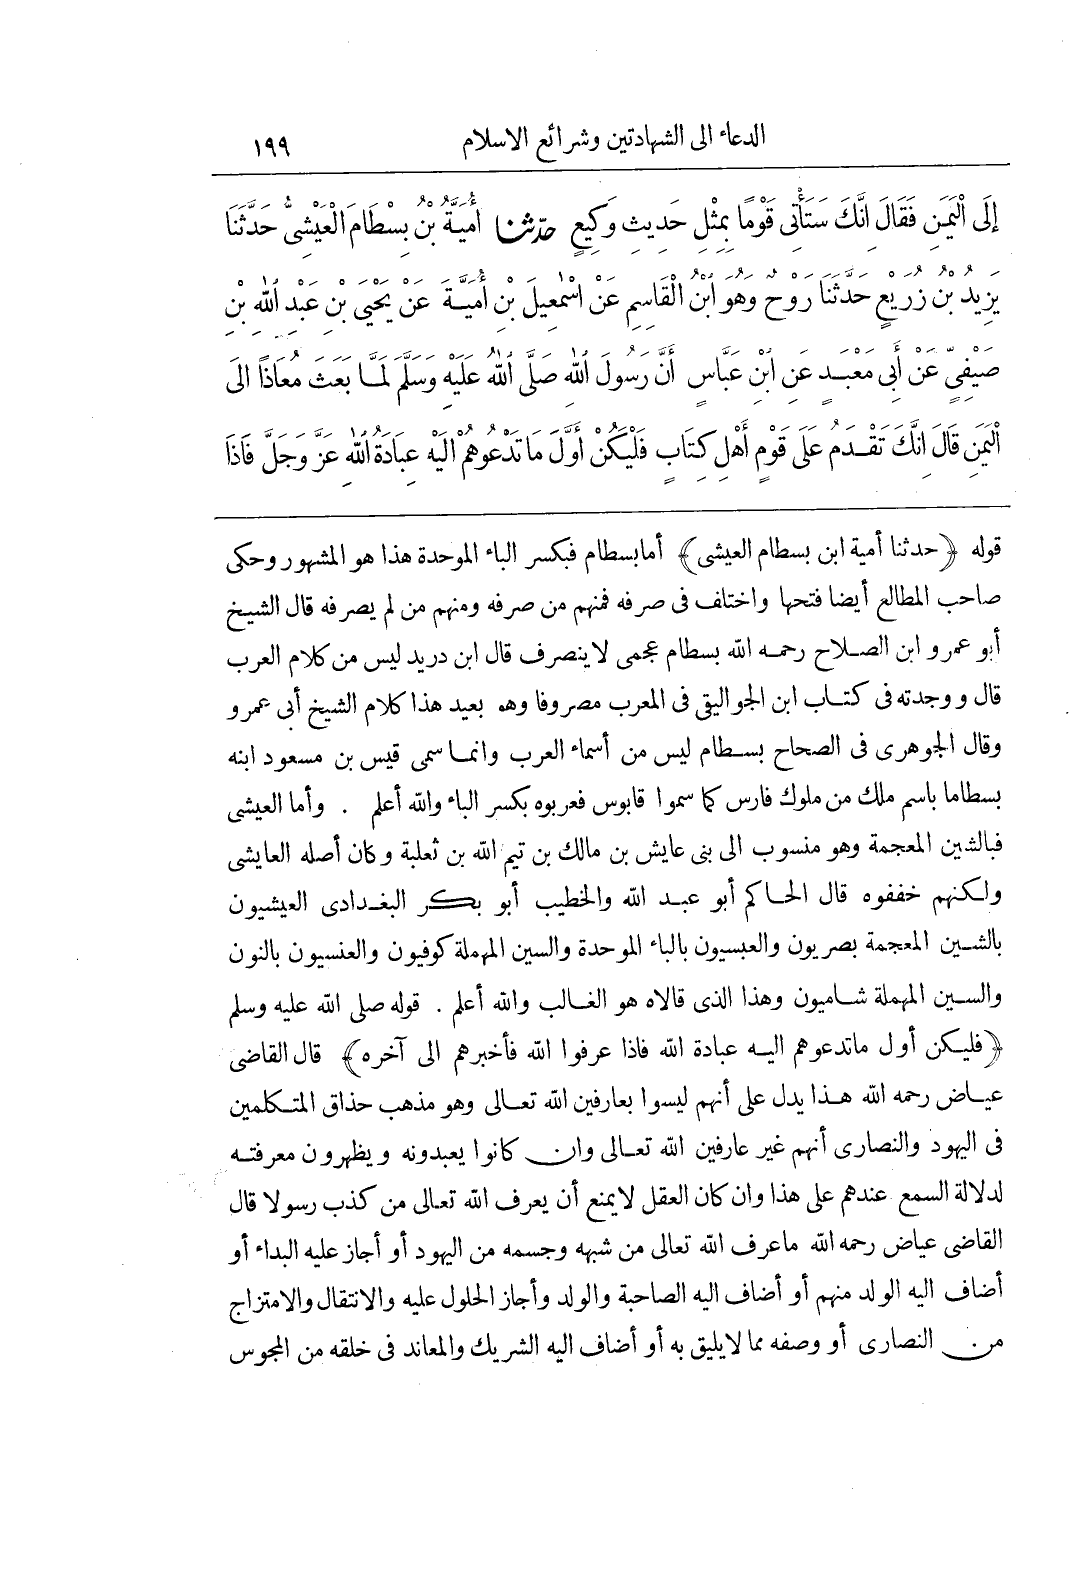 الدعاء الى الشهادتين وشرائع الاسلام ١٩٩
إِلَى الْيَمَنِ فَقَالَ إِنَّكَ سَتَأْتِى قَوْمًا بِمِثْلِ حَدِيثِ وَكِيعٍ حدّثنا أُمَيَّةُ بْنُ بِسْطَامَ الْعَيْشِىُّ حَدَّثَنَا
يَزِيدُ بْنُ زُرَيْعٍ حَدَّثَنَا رَوْحٌ وَهُوَ ابْنُ الْقَاسِمِ عَنْ اِسْمٰعِيلَ بْنِ أُمَيَّةَ عَنْ يَحْيَى بْنِ عَبْدِ اللّٰهِ بْنِ
صَيْفِىٍّ عَنْ أَبِى مَعْبَدٍ عَنِ ابْنِ عَبَّاسٍ أَنَّ رَسُولَ اللّٰهِ صَلَّى اللّٰهُ عَلَيْهِ وَسَلَّمَ لَمَّا بَعَثَ مُعَاذًا الَى
الْيَمَنِ قَالَ اِنَّكَ تَقْدَمُ عَلَى قَوْمٍ أَهْلِ كِتَابٍ فَلْيَكُنْ أَوَّلَ مَا تَدْعُوهُمْ الَيْهِ عِبَادَةُ اللّٰهِ عَزَّ وَجَلَّ فَاذَا
قوله ﴿حدثنا أمية ابن بسطام العيشى﴾ أما بسطام فبكسر الباء الموحدة هذا هو المشهور وحكى
صاحب المطالع أيضا فتحها واختلف فى صرفه فمنهم من صرفه ومنهم من لم يصرفه قال الشيخ
أبو عمرو ابن الصلاح رحمه الله بسطام عجمى لا ينصرف قال ابن دريد ليس من كلام العرب
قال ووجدته فى كتاب ابن الجواليقى فى المعرب مصروفا وهو بعيد هذا كلام الشيخ أبى عمرو
وقال الجوهرى فى الصحاح بسطام ليس من أسماء العرب وانما سمى قيس بن مسعود ابنه
بسطاما باسم ملك من ملوك فارس كما سموا قابوس فعربوه بكسر الباء والله أعلم . وأما العيشى
فبالشين المعجمة وهو منسوب الى بنى عايش بن مالك بن تيم الله بن ثعلبة وكان أصله العايشى
ولكنهم خففوه قال الحاكم أبو عبد الله والخطيب أبو بكر البغدادى العيشيون
بالشين المعجمة بصريون والعبسيون بالباء الموحدة والسين المهملة كوفيون والعنسيون بالنون
والسين المهملة شاميون وهذا الذى قالاه هو الغالب والله أعلم . قوله صلى الله عليه وسلم
﴿فليكن أول ماتدعوهم اليه عبادة الله فاذا عرفوا الله فأخبرهم الى آخره﴾ قال القاضى
عياض رحمه الله هذا يدل على أنهم ليسوا بعارفين الله تعالى وهو مذهب حذاق المتكلمين
فى اليهود والنصارى أنهم غير عارفين الله تعالى وان كانوا يعبدونه ويظهرون معرفته
لدلالة السمع عندهم على هذا وان كان العقل لا يمنع أن يعرف الله تعالى من كذب رسولا قال
القاضى عياض رحمه الله ماعرف الله تعالى من شبهه وجسمه من اليهود أو أجاز عليه البداء أو
أضاف اليه الولد منهم أو أضاف اليه الصاحبة والولد وأجاز الحلول عليه والانتقال والامتزاج
من النصارى أو وصفه مما لا يليق به أو أضاف اليه الشريك والمعاند فى خلقه من المجوس